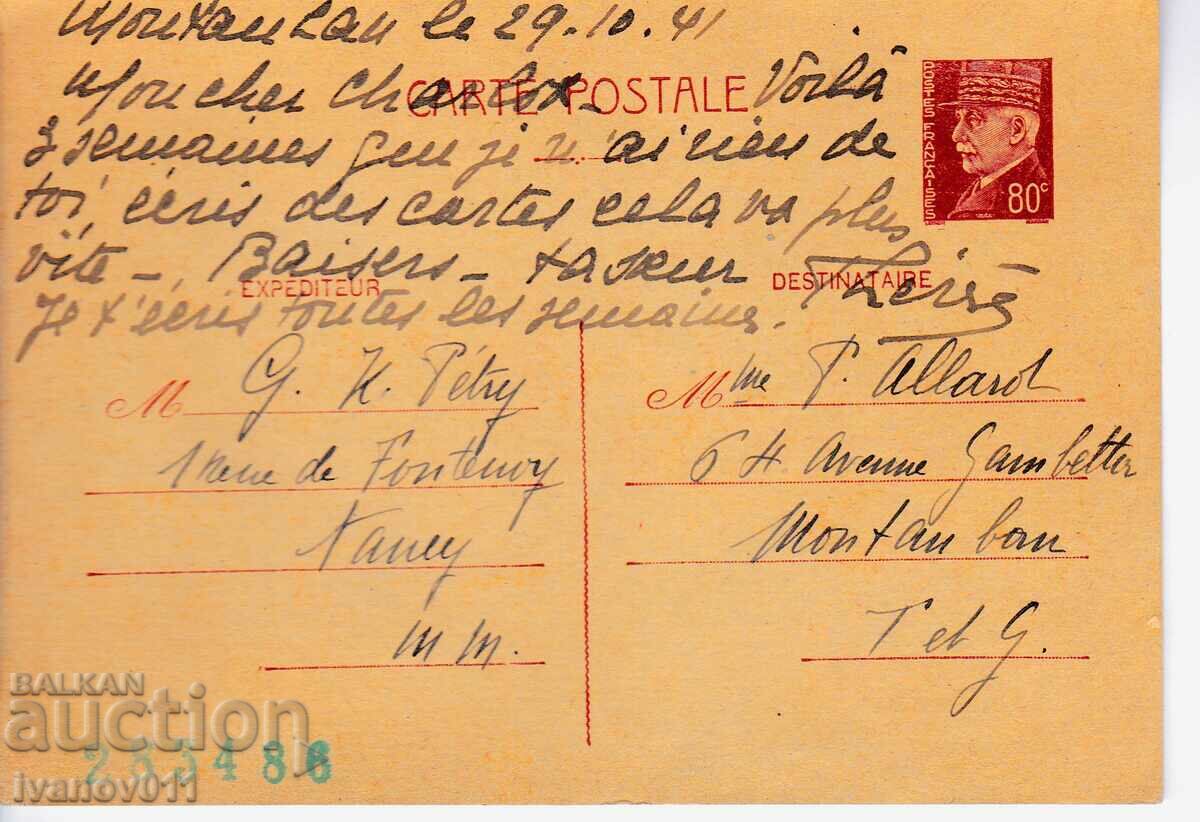 Montauban le 29.10.41
Mon cher
CARTE POSTALE
Voilà
3 semaines que je n'ai rien de
toi, écris des cartes cela va plus
vite - Baisers - ta sœur Thérèse
EXPÉDITEUR
DESTINATAIRE
Je t'écris toutes les semaines.
POSTES FRANÇAISES
80c
M G. K. Pétry
rue de Fontenoy
Nancy
M M.
Mme P. Allard
64 Avenue Gambetta
Montauban
T et G.
BALKAN
auction
283486
ivanov011